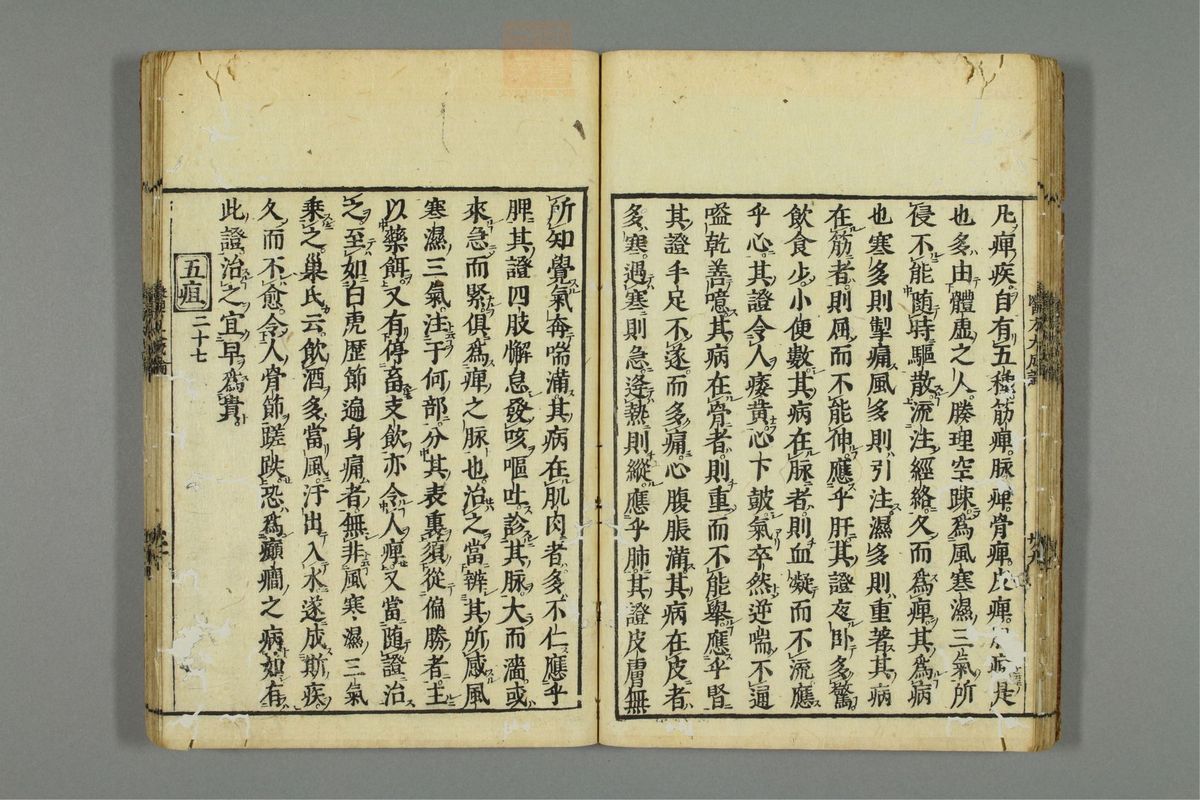 凡痺疾自有五種筋痺脉痺骨痺皮痺肌痺是
也多由體虛之人腠理空踈爲風寒濕三氣所
侵不能隨時驅散流注經絡久而爲痺其爲病
也寒多則掣痛風多則引注濕多則重著其病
在筋者則屈而不能伸應乎肝其證夜臥多驚
飮食少小便數其病在脉者則血凝而不流應
乎心其證令人痿黃心下皷氣卒然逆喘不通
嗌乾善噫其病在骨者則重而不能舉應乎腎
其證手足不遂而多痛心腹脹滿其病在皮者
多寒遇寒則急逢熱則縱應乎肺其證皮膚無
所知覺氣奔喘滿其病在肌肉者多不仁應乎
脾其證四肢懈怠發咳嘔吐診其脉大而濇或
來急而緊俱爲痺之脉也治之當辨其所感風
寒濕三氣注于何部分其表裏須從偏勝者主
以藥餌又有停蓄支飮亦令人痺又當隨證治
之至如白虎歷節遍身痛者無非風寒濕三氣
乘之巢氏云飮酒多當風汗出入水遂成斯疾
久而不愈令人骨節蹉跌恐爲癲癎之病如有
此證治之宜早爲貴
五疽 二十七